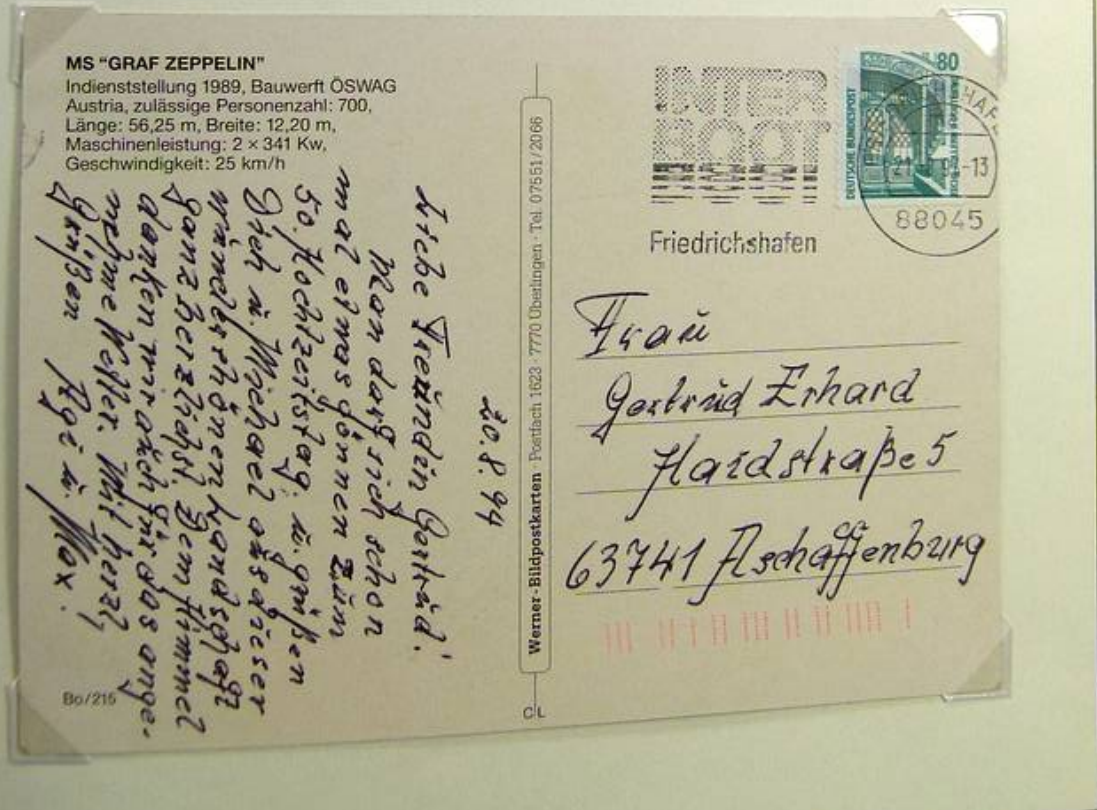 MS “GRAF ZEPPELIN”
Indienststellung 1989, Bauwerft ÖSWAG
Austria, zulässige Personenzahl: 700,
Länge: 56,25 m, Breite: 12,20 m,
Maschinenleistung: 2 × 341 Kw,
Geschwindigkeit: 25 km/h
20.8.94
Liebe Freundin Gertrud!
Man darf sich schon
mal etwas gönnen zum
50. Hochzeitstag, u. grüßen
Dich u. Michael aus dieser
wunderschönen Landschaft
ganz herzlichst. Dem Himmel
danken wir auch für das ange-
nehme Wetter. Mit herzl.
Grüßen Agi u. Max.
Bo/215
Werner-Bildpostkarten · Postfach 1623 · 7770 Überlingen · Tel. 07551/2066
CL
INTER
BOOT
Friedrichshafen
80
DEUTSCHE BUNDESPOST
-13
88045
Frau
Gertrud Erhard
Haidstraße 5
63741 Aschaffenburg